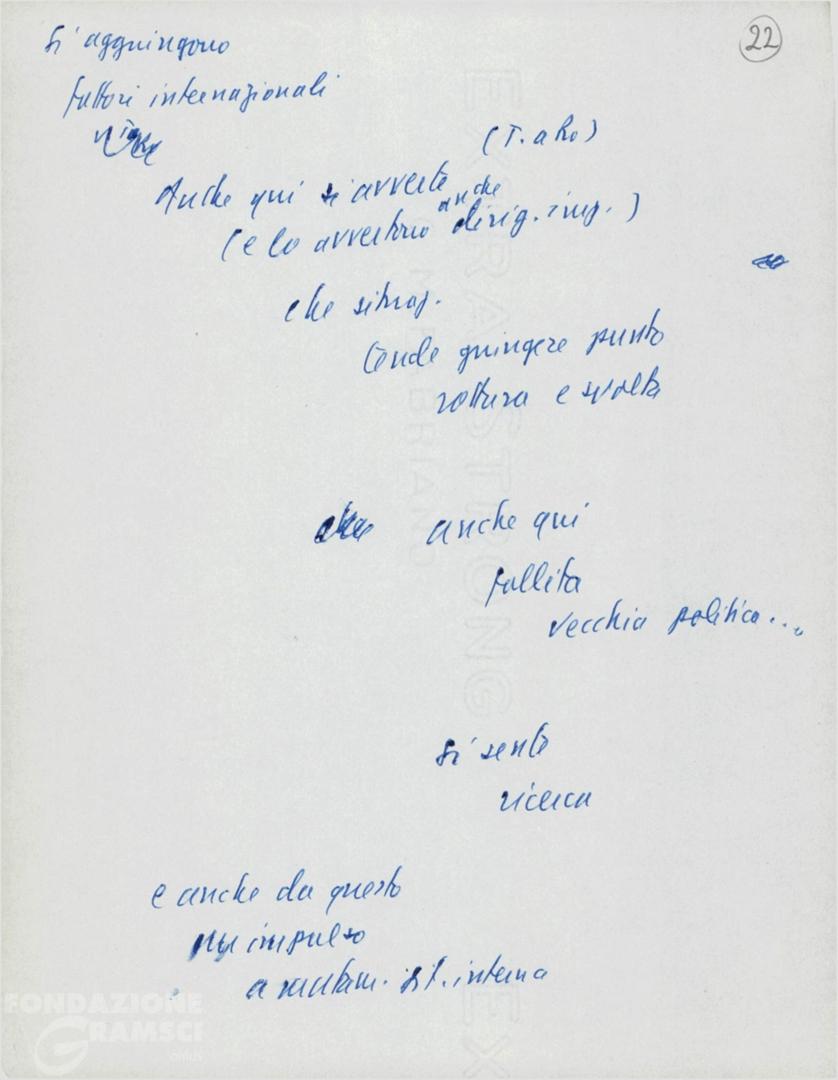 22
Si aggiungono
fattori internazionali
(T. a Ro)
Anche qui si avverte
(e lo avvertono anche dirig. imp.)
che situaz.
tende giungere punto
rottura e svolta
anche qui
fallita
vecchia politica...
Si sente
ricerca
e anche da questo
impulso
a mutam. sit. interna
FONDAZIONE
GRAMSCI
onlus
EXTRA STRONG
FABRIANO
EX